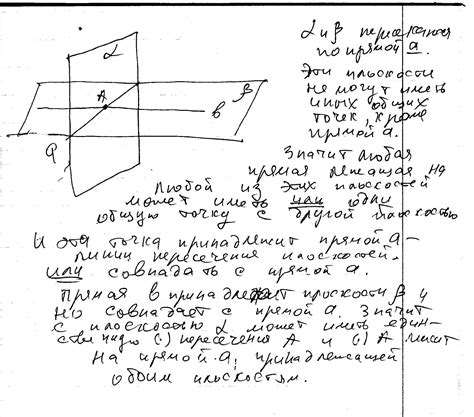 α и β пересекаются
по прямой a.
Эти плоскости
не могут иметь
иных общих
точек, кроме
прямой a.
Значит любая
прямая лежащая на
любой из этих плоскостей
может иметь или одну
общую точку с другой плоскостью
И эта точка принадлежит прямой a –
линии пересечения плоскостей.
или совпадать с прямой a.
Прямая в принадлежит плоскости β и
не совпадает с прямой a. Значит
с плоскостью α может иметь един-
ственную (·) пересечения A и (·) A лежит
на прямой a, принадлежащей
обоим плоскостям.
α
A
β
в
a